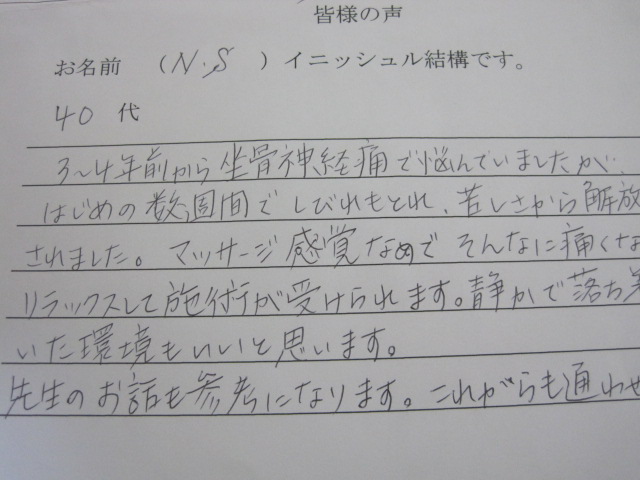 皆様の声
お名前 （N.S）イニッシュル結構です。
40代
3〜4年前から坐骨神経痛で悩んでいましたが、
はじめの数週間でしびれもとれ、苦しさから解放
されました。マッサージ感覚なのでそんなに痛くな
リラックスして施術が受けられます。静かで落ち着
いた環境もいいと思います。
先生のお話も参考になります。これからも通わせ